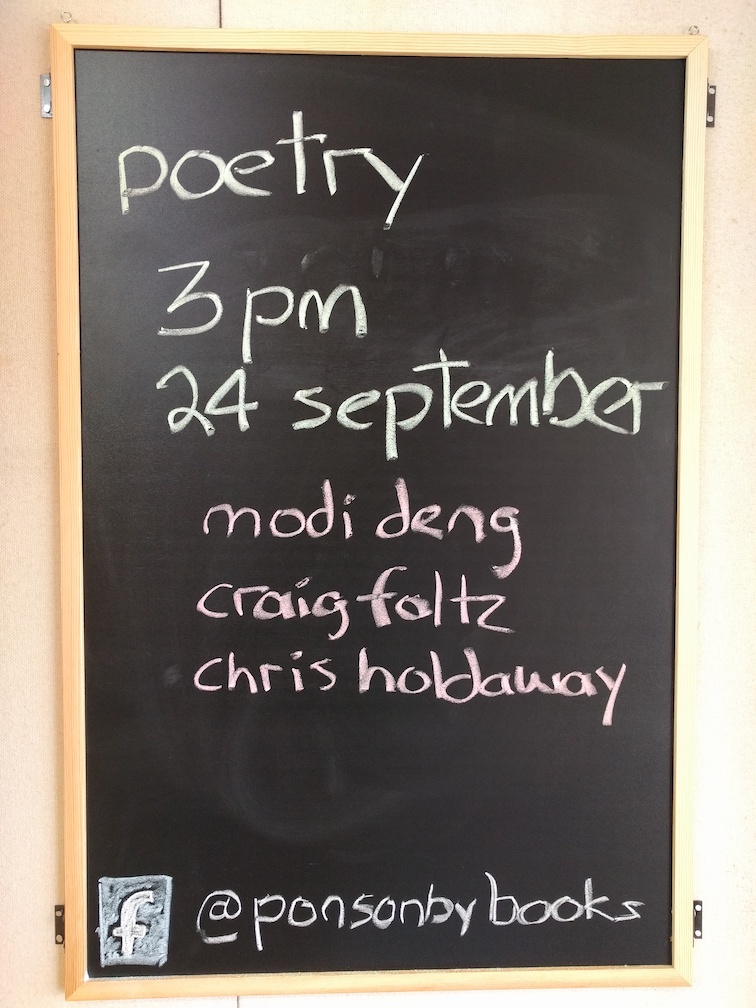 poetry
3pm
24 september
modi deng
craig foltz
chris holdaway
f @ponsonbybooks